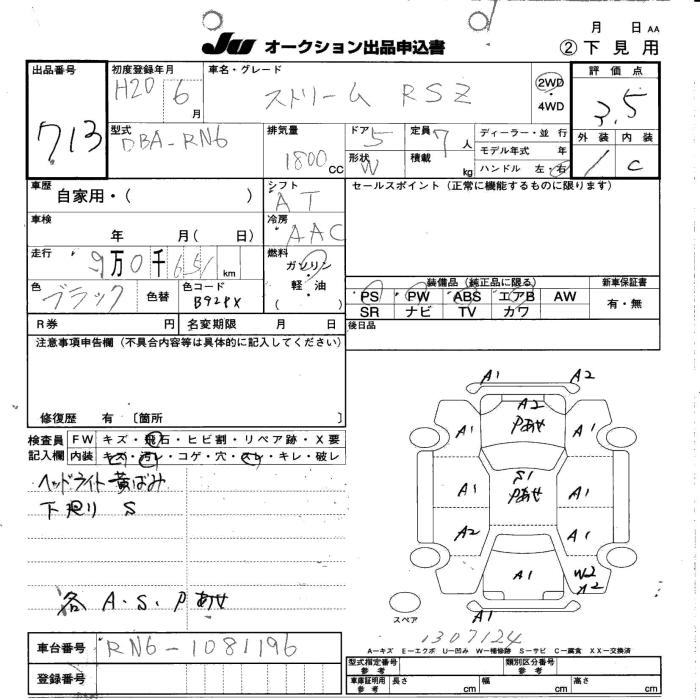 JU オークション出品申込書
月 日 AA
② 下見用
出品番号 713
初度登録年月 H20 6月
車名・グレード ストリーム RSZ
2WD ・ 4WD
評価点 3.5
外装 内装 C
型式 DBA-RN6
排気量 1800 CC
ドア 5
形状 W
定員 7 人
積載 kg
ディーラー・並行
モデル年式 年
ハンドル 左・右
車歴 自家用・( )
シフト AT
セールスポイント (正常に機能するものに限ります)
車検 年 月( 日)
冷房 AAC
走行 9万0千651 km
燃料 ガソリン・軽・油 ( )
色 ブラック 色替
色コード B92PX
装備品 (純正品に限る) 新車保証書
PS PW ABS エアB AW 有・無
SR ナビ TV カワ
R券 円 名変期限 月 日
後日品
注意事項申告欄 (不具合内容等は具体的に記入してください)
修復歴 有 〔箇所 〕
検査員記入欄
FW キズ・飛石・ヒビ割・リペア跡・X要
内装 キズ・汚レ・コゲ・穴・スレ・キレ・破レ
ヘッドライト黄ばみ
下廻り S
各 A・S・Pあせ
A1 A2
A1 A2 Pあせ A1
A1 S1 Pあせ A1
A2 A1
A1 W2 A2
A1
スペア
1307124
A-キズ E-エクボ U-凹み W-補修跡 S-サビ C-腐食 XX-交換済
車台番号 RN6-1081196
登録番号
型式指定番号 参考 類別区分番号 参考
車庫証明用 参考 長さ cm 幅 cm 高さ cm